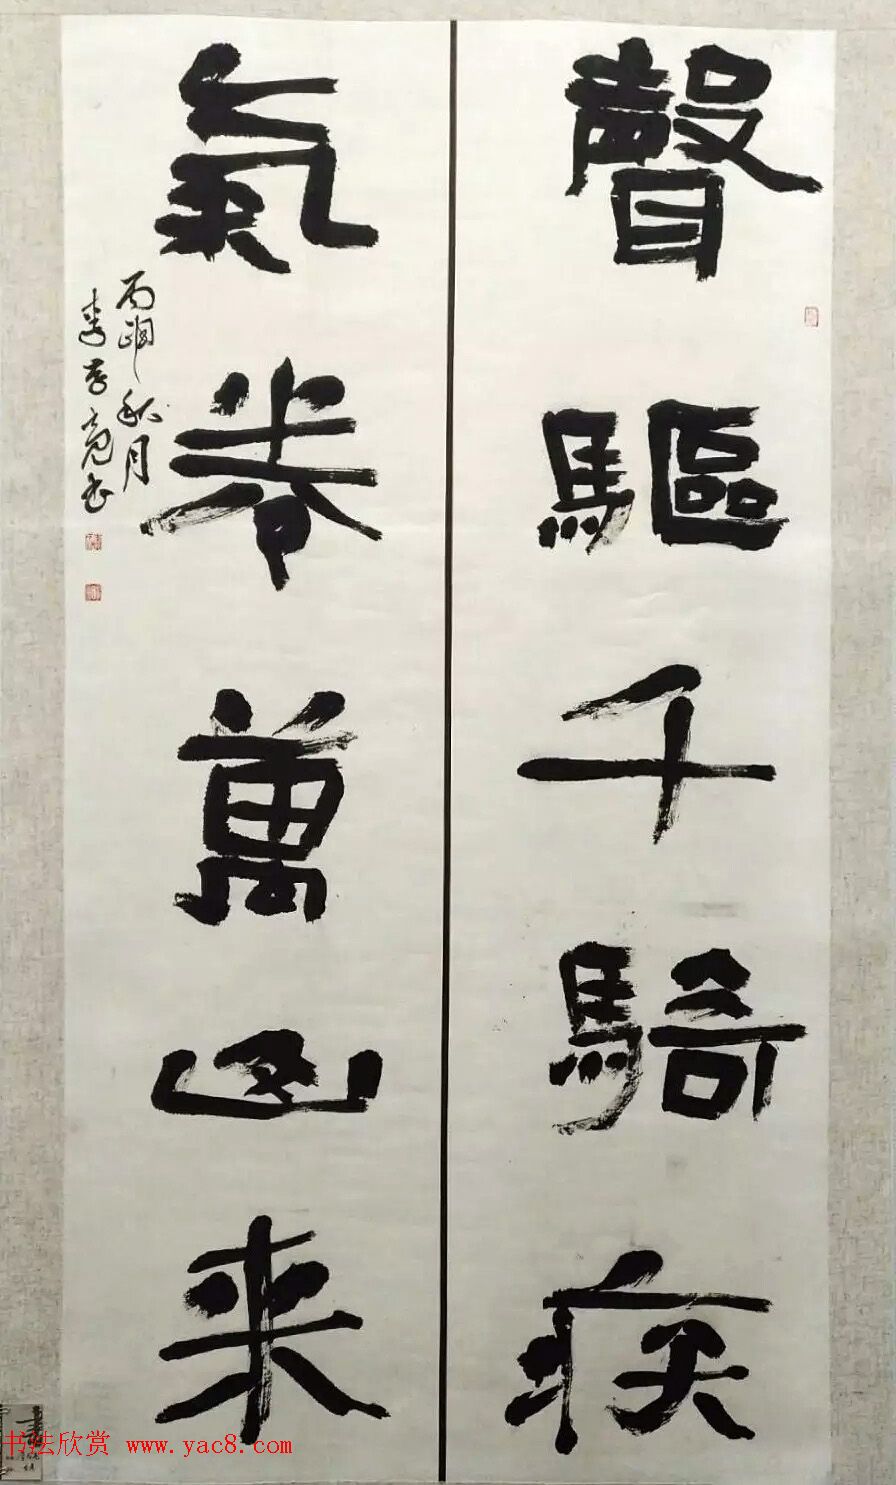 聲驅千騎疾
氣卷萬山来
丙申秋月
亮书
书法欣赏 www.yac8.com